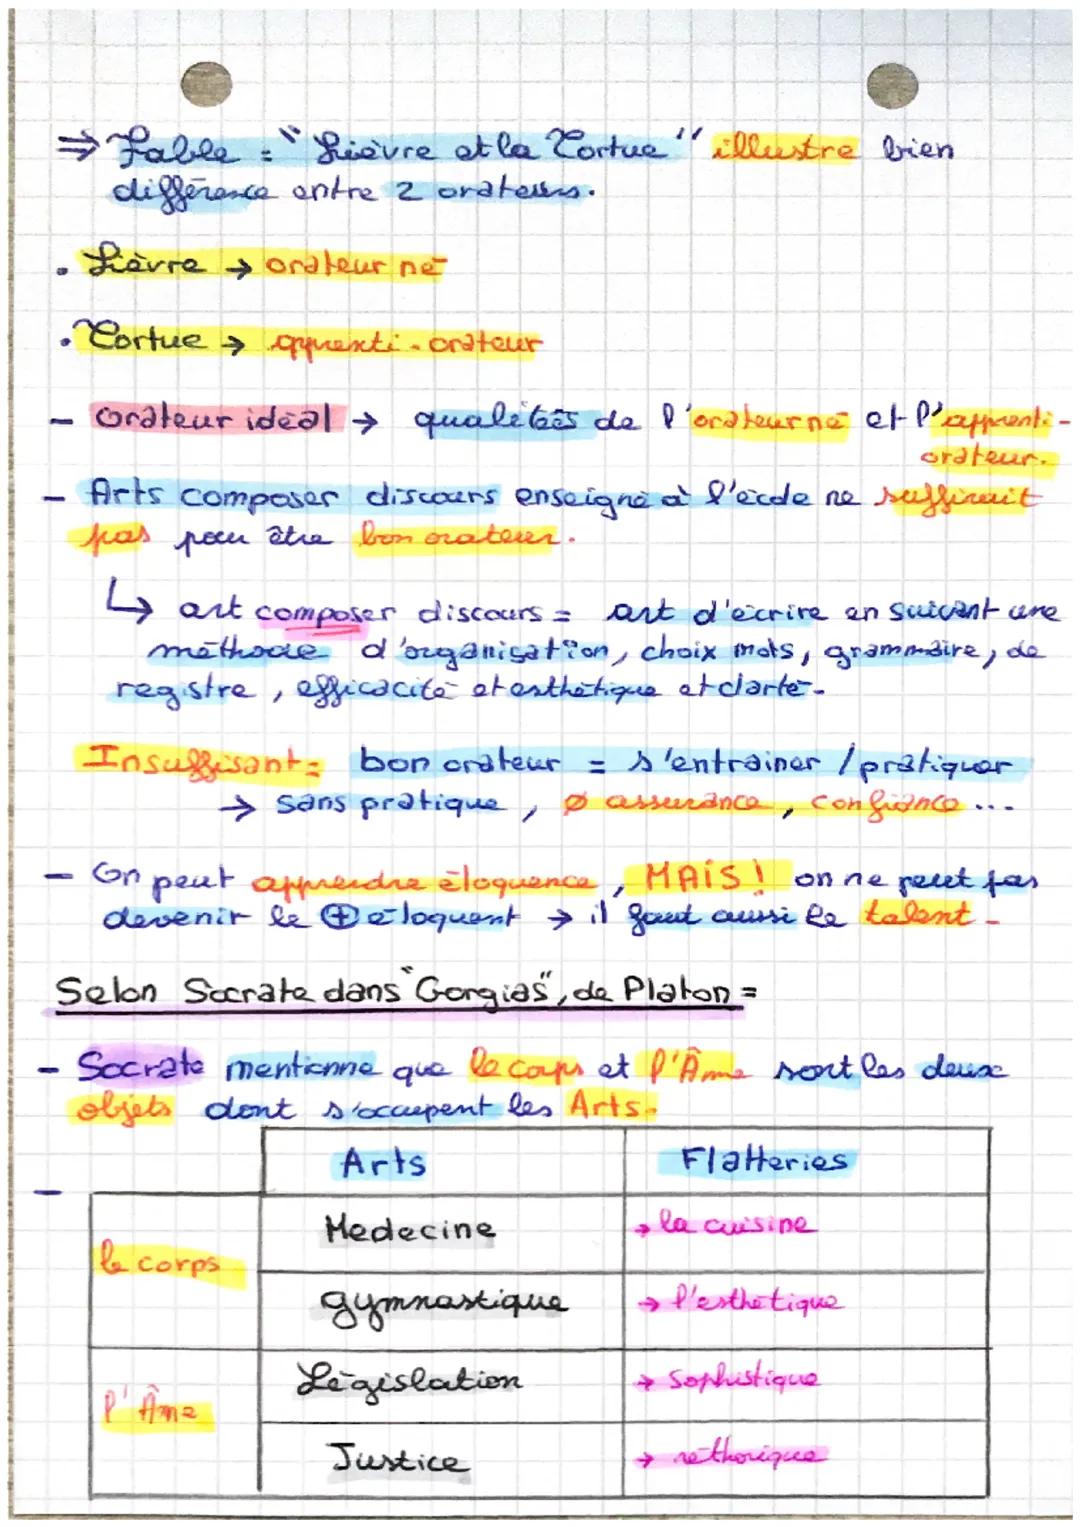 ⇒ Fable = "Lièvre et la Tortue" illustre bien
différence entre 2 orateurs.
. Lièvre → orateur né
. Tortue → apprenti-orateur
- Orateur idéal → qualités de l'orateur né et l'apprenti-
orateur.
- Arts composer discours enseigné à l'école ne suffirait
pas pour être bon orateur.
↳ art composer discours = art d'écrire en suivant une
méthode d'organisation, choix mots, grammaire, de
registre, efficacité et esthétique et clarté.
Insuffisant = bon orateur = s'entrainer / pratiquer
→ sans pratique, ø assurance, confiance ...
- On peut apprendre éloquence, MAIS! on ne peut pas
devenir le ⊕ éloquent → il faut aussi le talent -
Selon Socrate dans "Gorgias", de Platon =
- Socrate mentionne que le corps et l'Âme sont les deux
objets dont s'occupent les Arts.
Arts Flatteries
-
le corps Medecine → la cuisine
gymnastique → l'esthétique
l'Âme Législation → sophistique
Justice → réthorique